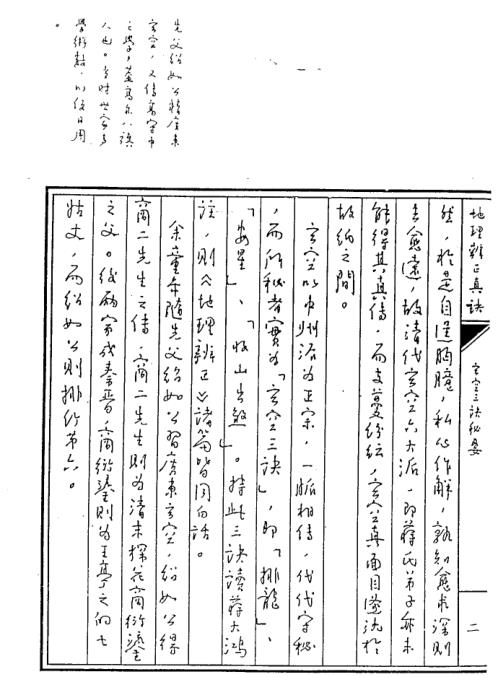 地理辨正真訣
玄空三訣秘要
二
先父紹如公精廣東
玄空,又傳
之學,蓋廣東八旗
人也。當時世家子
學術數,以後日用
。
然,於是自逞胸臆,私心作解,孰知愈求深則
去愈遠,故清代玄空六大派,即蔣氏弟子亦未
能得其真傳,而支蔓紛紜,玄空真面目遂沈於
故紙之間。
玄空以中州派為正宗,一脈相傳,代代守秘
,而所秘者實為「玄空三訣」,即「排龍」、
「安星」、「收山出煞」。持此三訣讀蔣大鴻
註,則《地理辨正》諸篇皆同白話。
余童年隨先父紹如公習廣東玄空,紹如公得
商二先生之傳,商二先生則為清末探花商衍鎏
之父。後兩家成秦晉,商衍鎏則為王亭之的七
姑丈,而紹如公則排行第六。